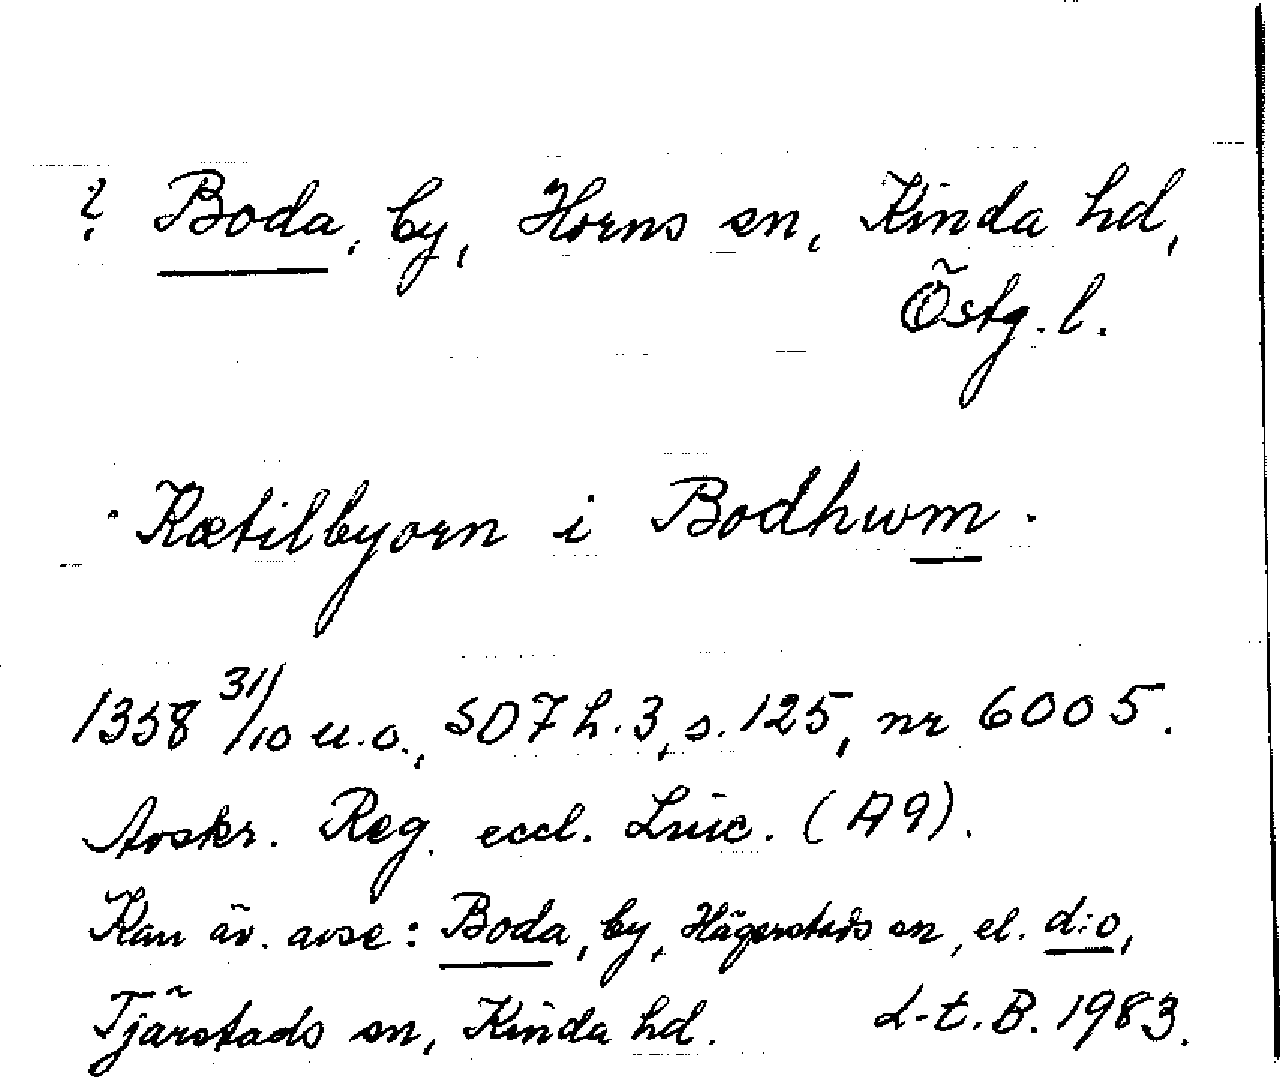 ? Boda, by, Horns sn, Kinda hd,
Östg. l.
Kætilbyorn i Bodhwm.
1358 31/10 u.o., SD 7 h. 3, s. 125, nr 6005.
Avskr. Reg. eccl. Linc. (A9).
Kan äv. avse: Boda, by, Hägerstads sn, el. d:o,
Tjärstads sn, Kinda hd. L-t. B. 1983.